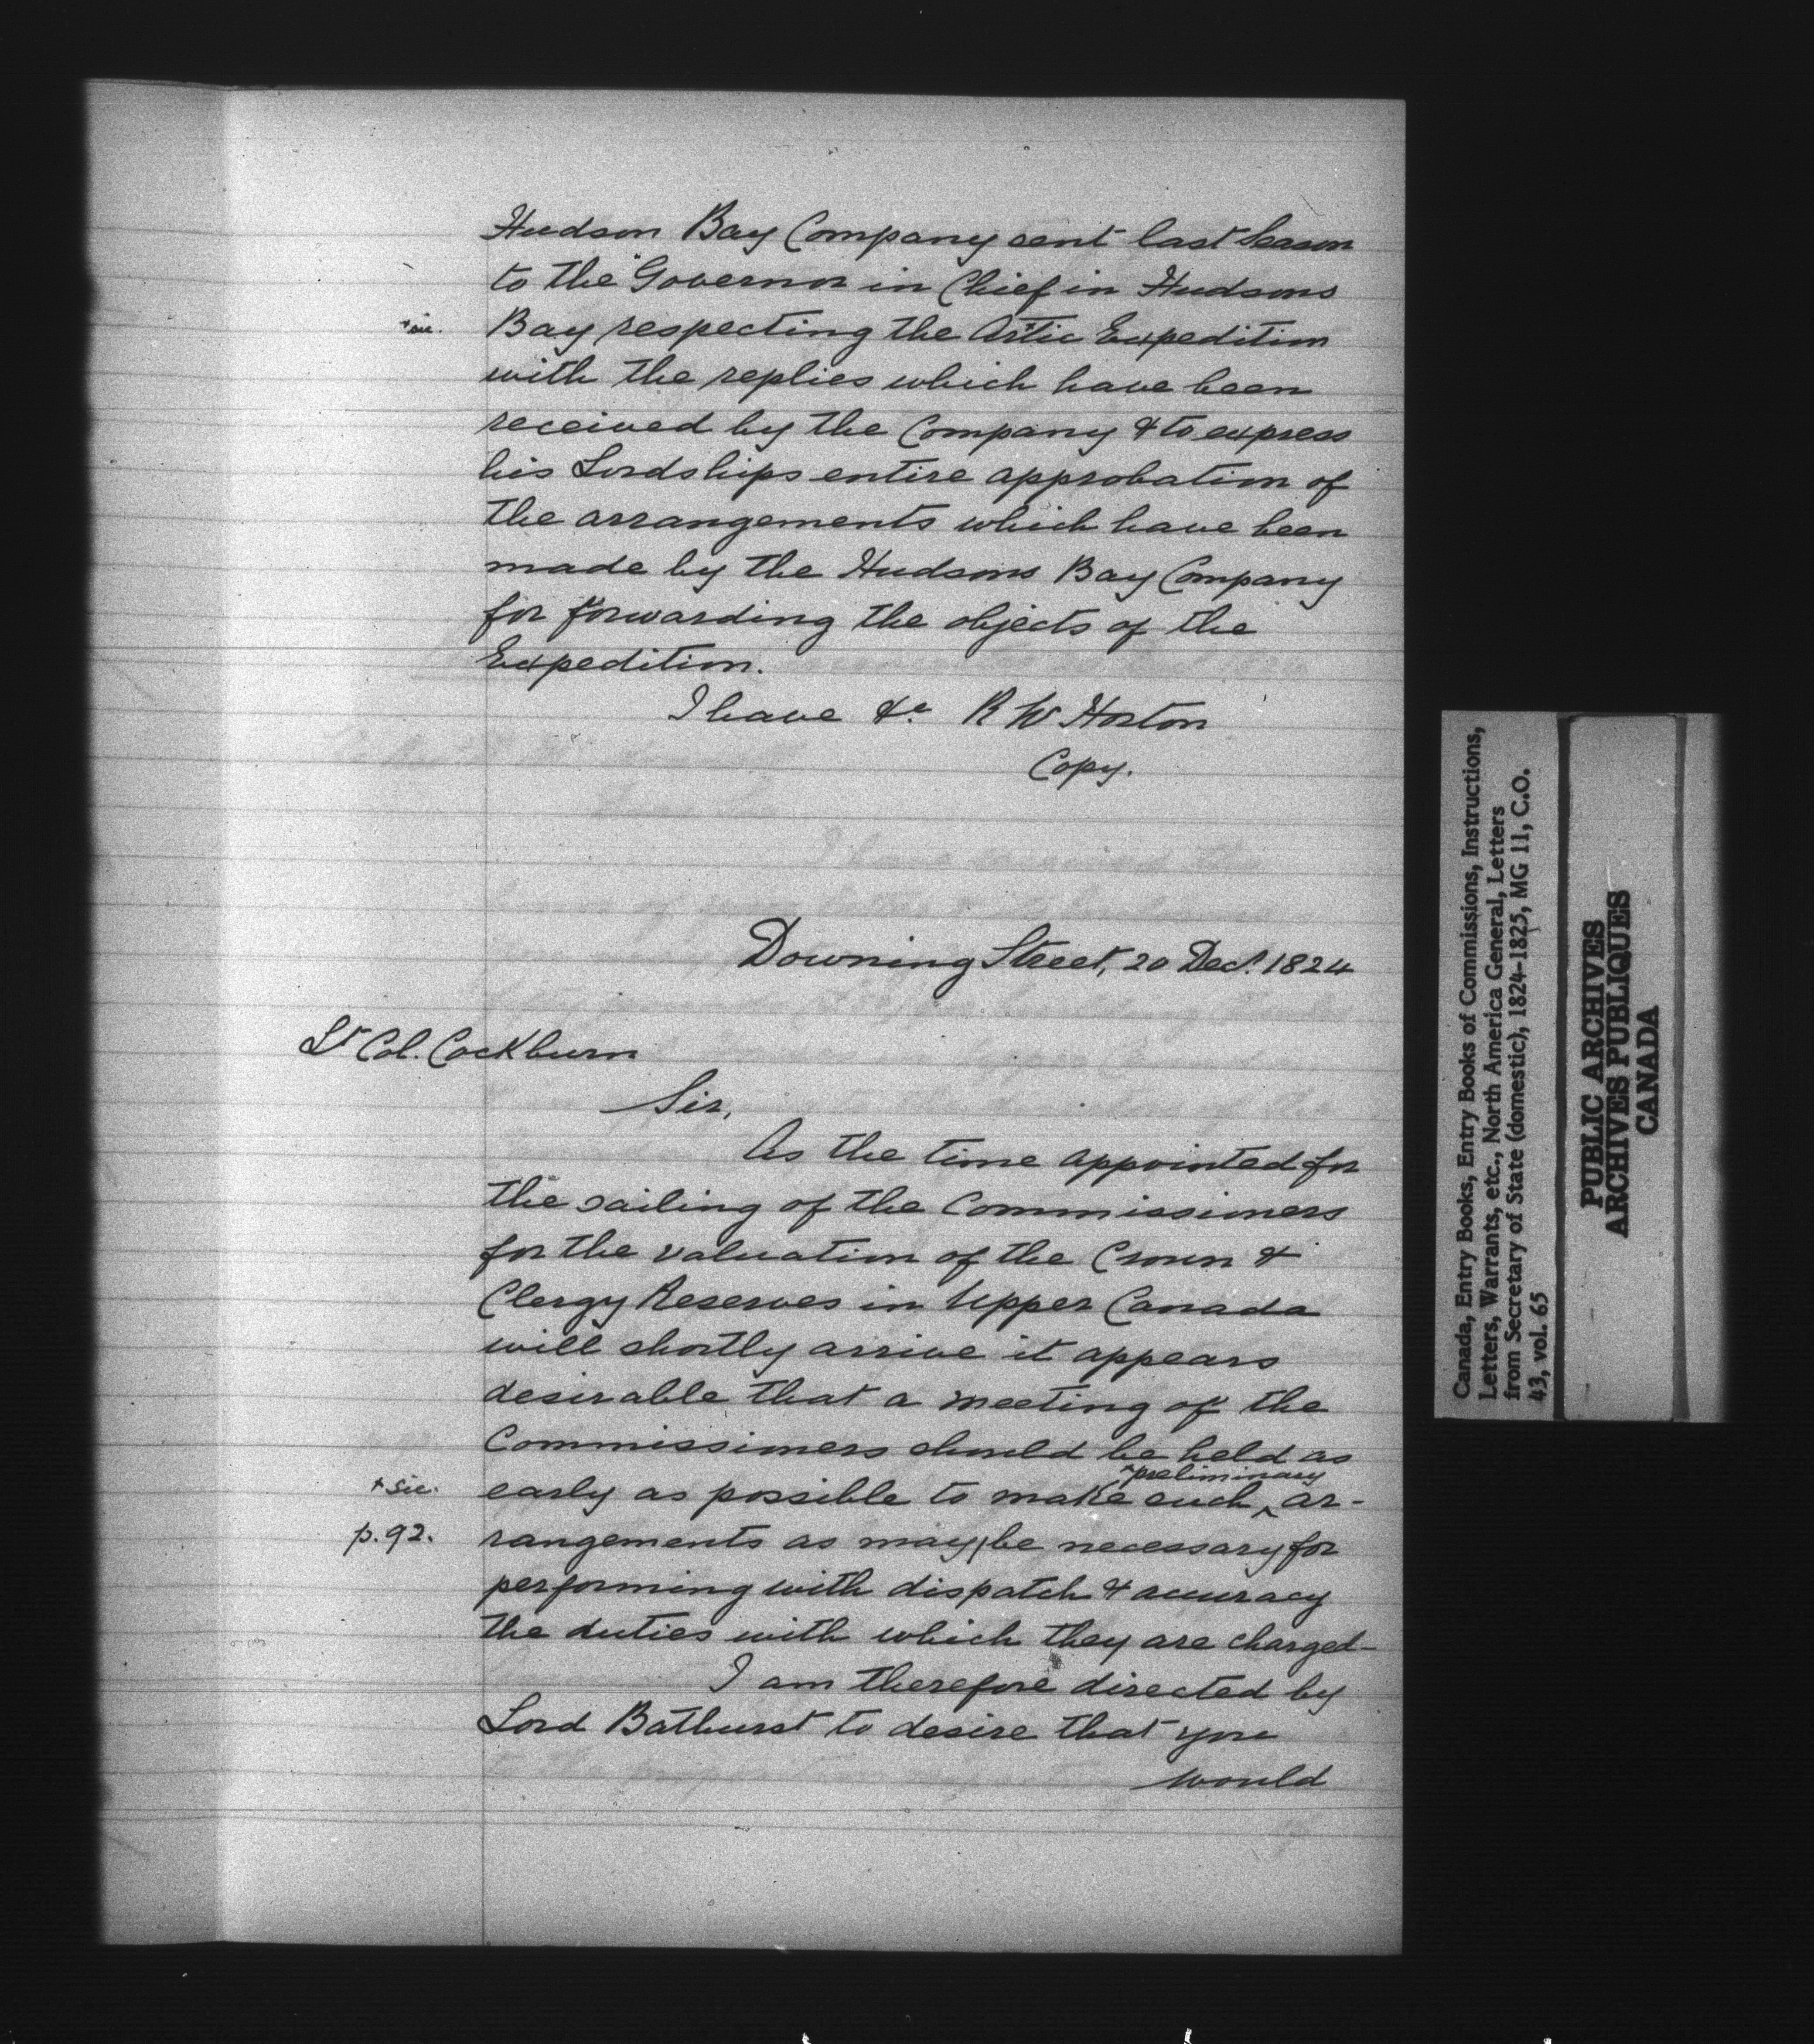 Hudson Bay Company sent last Season
to the Governor in Chief in Hudsons
+ sic. Bay respecting the Artic Expedition
with the replies which have been
received by the Company & to express
his Lordships entire approbation of
the arrangements which have been
made by the Hudsons Bay Company
for forwarding the objects of the
Expedition.
I have &c R W Horton
Copy.
Downing Street, 20 Decr. 1824
Lt Col. Cockburn
Sir,
As the time appointed for
the sailing of the Commissioners
for the valuation of the Crown &
Clergy Reserves in Upper Canada
will shortly arrive it appears
desirable that a meeting of the
Commissioners should be held as
+ preliminary
+ sic. early as possible to make such ‸ ar-
p. 92. rangements as may be necessary for
performing with dispatch & accuracy
the duties with which they are charged-
I am therefore directed by
Lord Bathurst to desire that you
would
Canada, Entry Books, Entry Books of Commissions, Instructions,
Letters, Warrants, etc., North America General, Letters
from Secretary of State (domestic), 1824-1825, MG 11, C.O.
43, vol. 65
PUBLIC ARCHIVES
ARCHIVES PUBLIQUES
CANADA